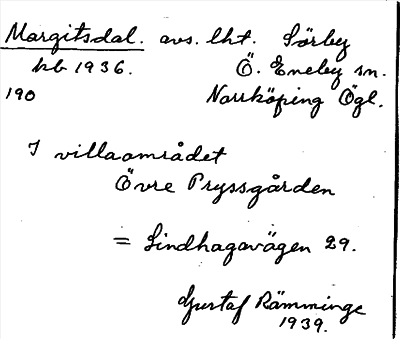 Margitsdal. avs. lht. Sörby
kb 1936. Ö. Eneby sn.
190 Norrköping Ögl.
I villaområdet
Övre Pryssgården
= Lindhagavägen 29.
Gustaf Rämminge
1939.